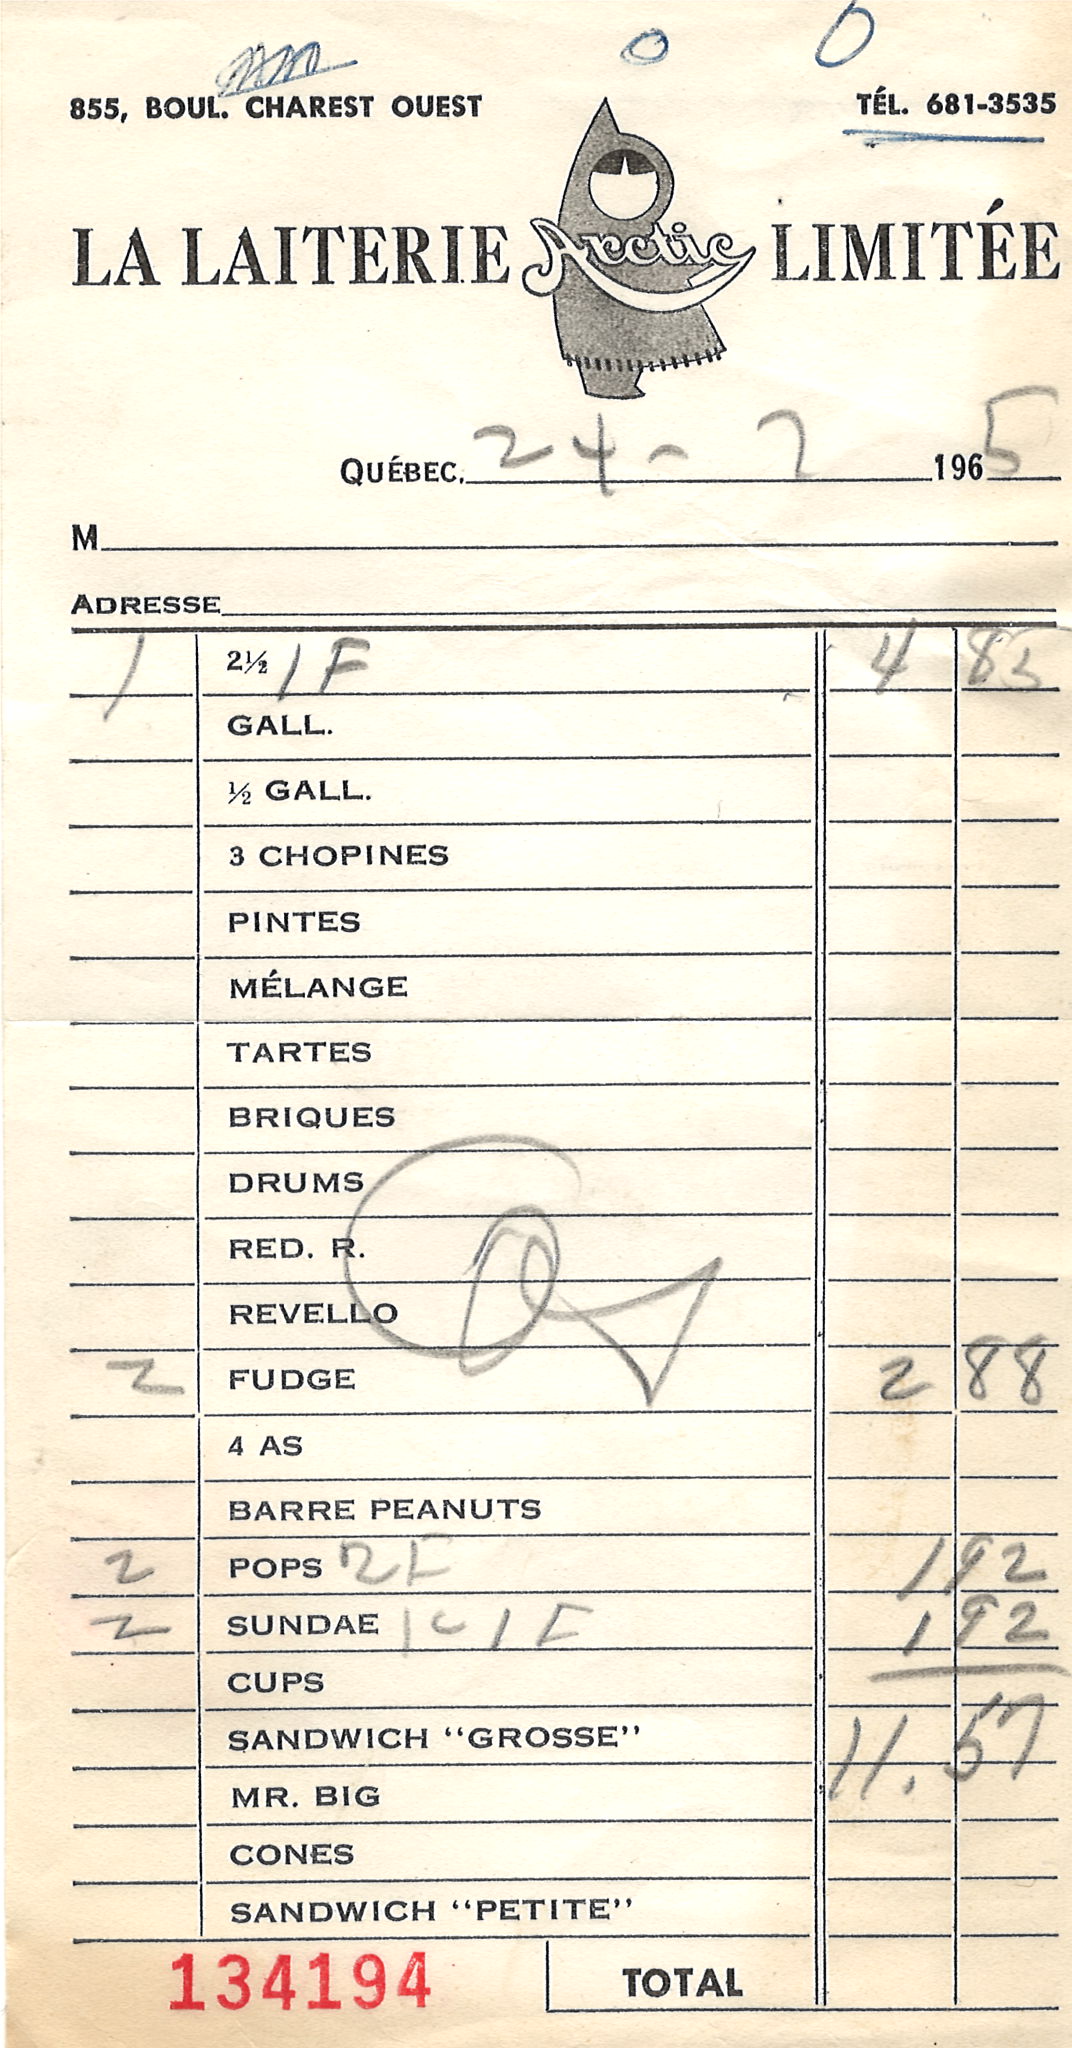 855, BOUL. CHAREST OUEST TÉL. 681-3535
LA LAITERIE Arctic LIMITÉE
QUÉBEC, 24 - 7 1965
M
ADRESSE
1 2½ 1 F 4 85
GALL.
½ GALL.
3 CHOPINES
PINTES
MÉLANGE
TARTES
BRIQUES
DRUMS
RED. R.
REVELLO
2 FUDGE 2 88
4 AS
BARRE PEANUTS
2 POPS 2F 1 92
2 SUNDAE 1c 1F 1 92
CUPS
SANDWICH "GROSSE"
11.57
MR. BIG
CONES
SANDWICH "PETITE"
134194 TOTAL